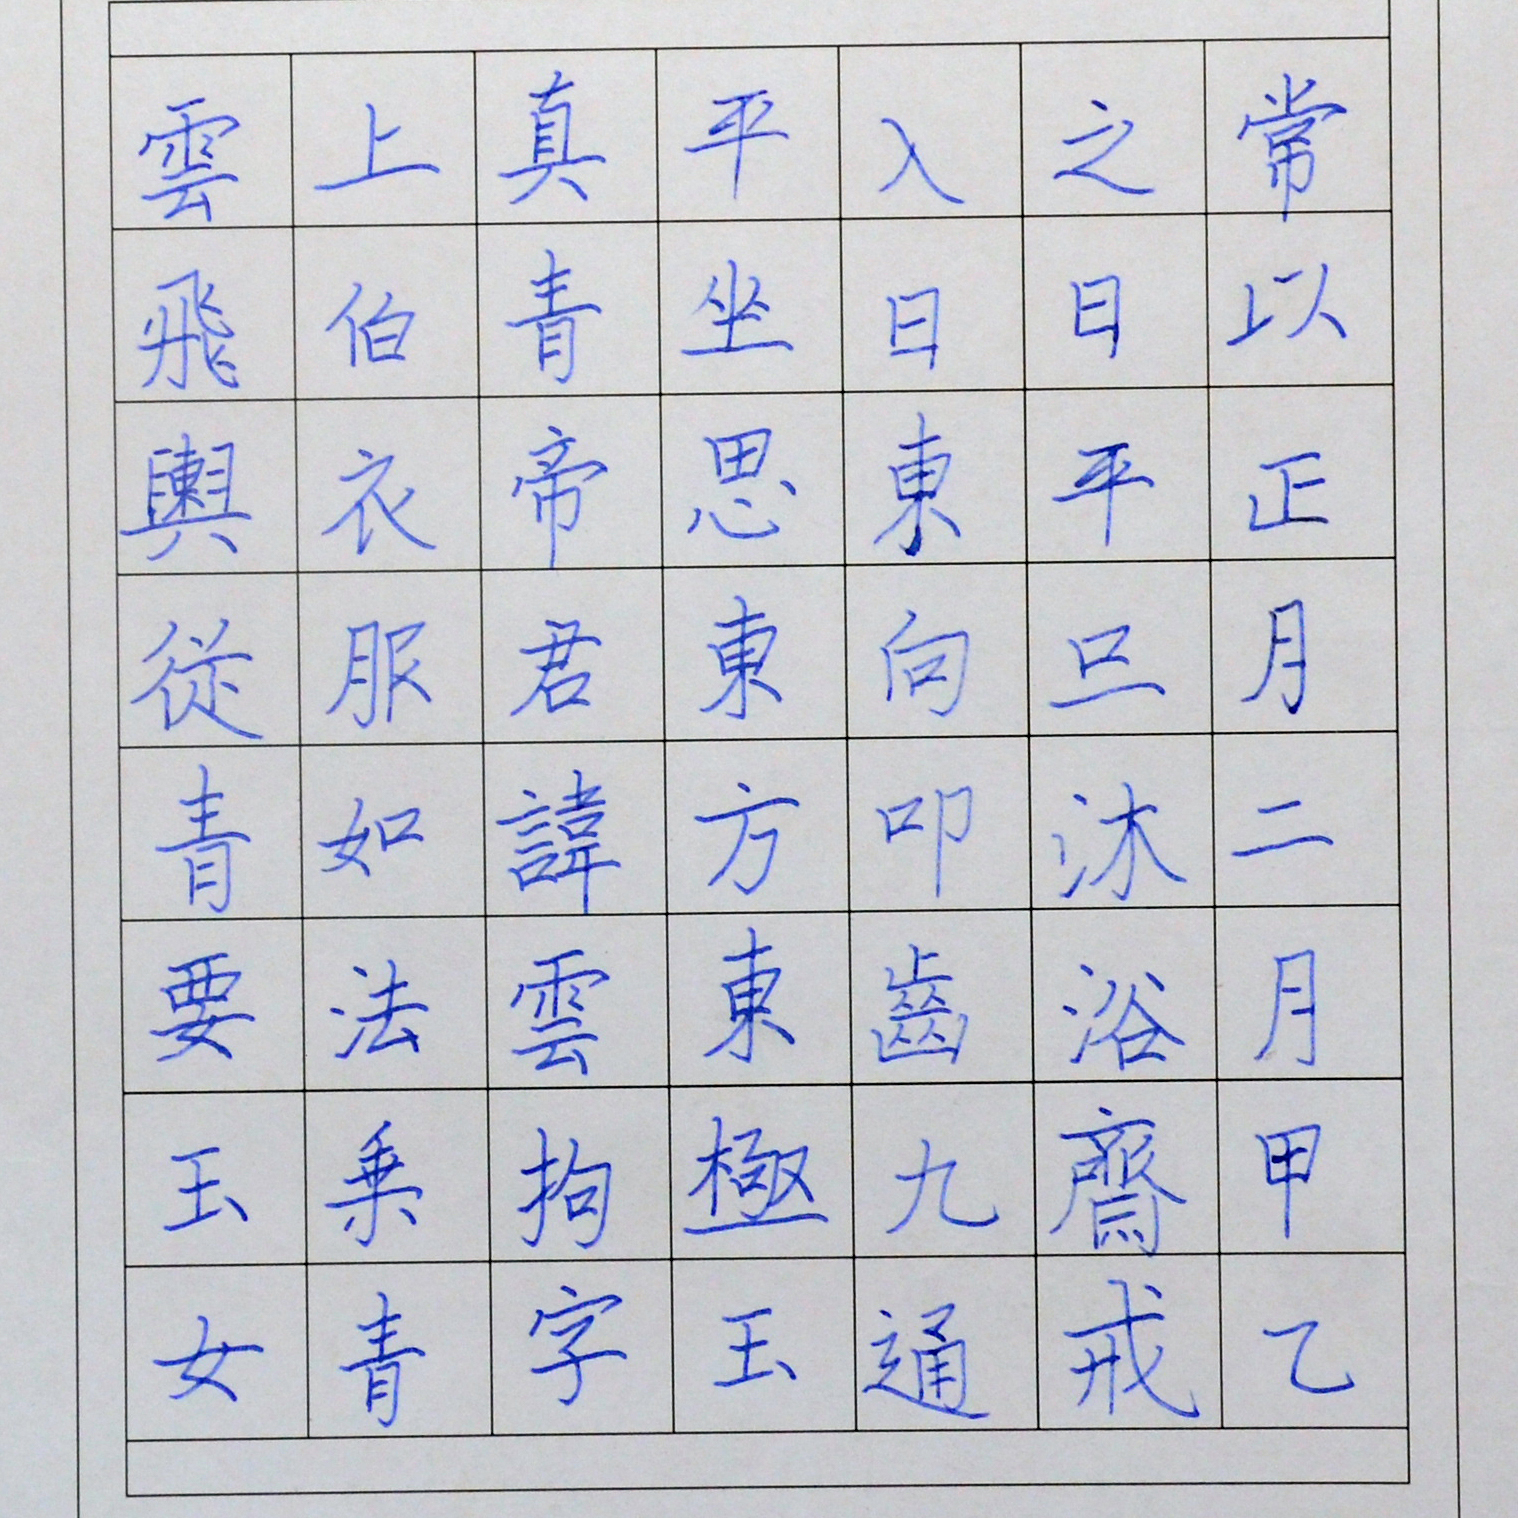 常以正月二月甲乙
之日平旦沐浴齋戒
入日東向叩齒九通
平坐思東方東極玉
真青帝君諱雲拘字
上伯衣服如法乗青
雲飛輿從青要玉女